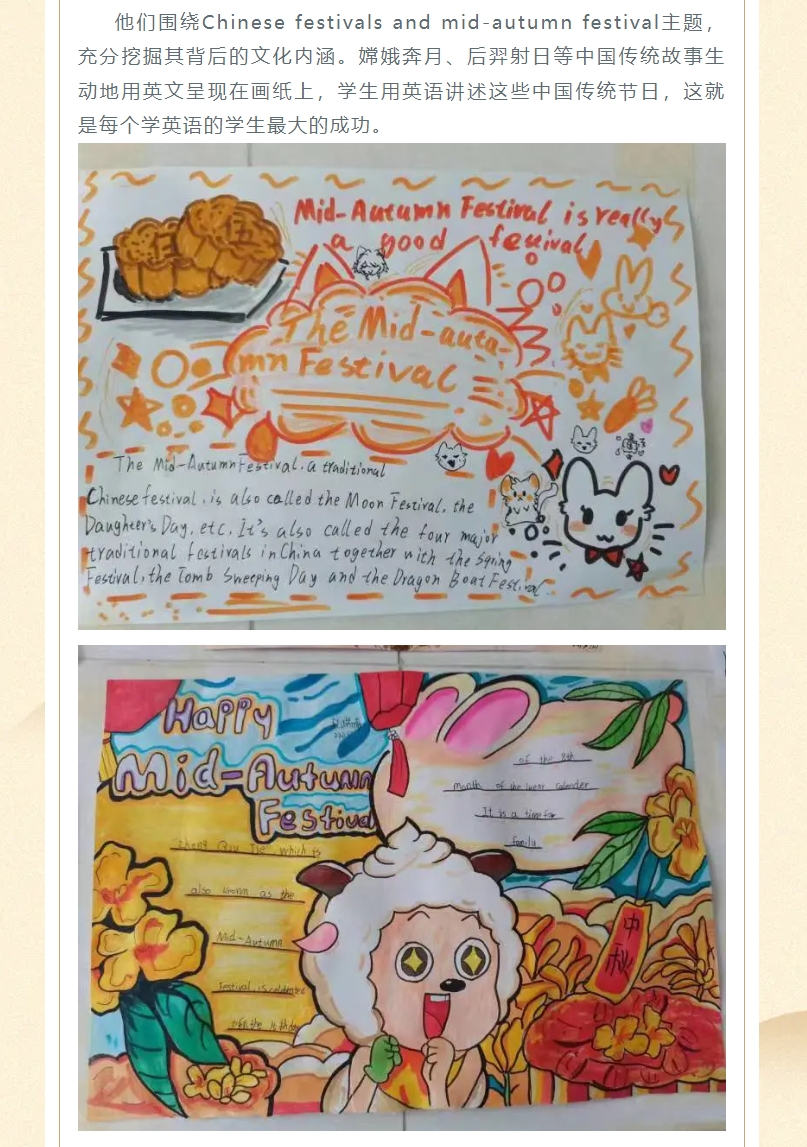 他们围绕Chinese festivals and mid-autumn festival主题，
充分挖掘其背后的文化内涵。嫦娥奔月、后羿射日等中国传统故事生
动地用英文呈现在画纸上，学生用英语讲述这些中国传统节日，这就
是每个学英语的学生最大的成功。
Mid-Autumn Festival is really
a good fesival
The Mid-auta-
mn Festival
The Mid-Autumn Festival, a traditional
Chinese festival, is also called the Moon Festival, the
Daughter's Day, etc. It's also called the four major
traditional festivals in China together with the Spring
Festival, the Tomb Sweeping Day and the Dragon Boat Festival
Happy
Mid-Autumn
Festival
of the 8th
month of the lunar calender
It is a time for
family
"zhong Qiu Jie", which is
also known as the
Mid-Autumn
Festival, is celebrated
on the 15th day
中秋